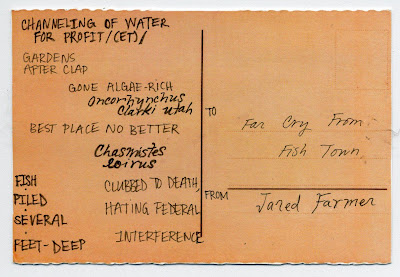 CHANNELING OF WATER
FOR PROFIT/(ET)/
GARDENS
AFTER CLAP
GONE ALGAE-RICH
Oncorihynchus
Clarki utah
BEST PLACE NO BETTER
Chasmistes
loirus
FISH
CLUBBED TO DEATH,
PILED
HATING FEDERAL
SEVERAL
INTERFERENCE
FEET-DEEP
TO
Far Cry From
Fish Town
FROM
Jared Farmer